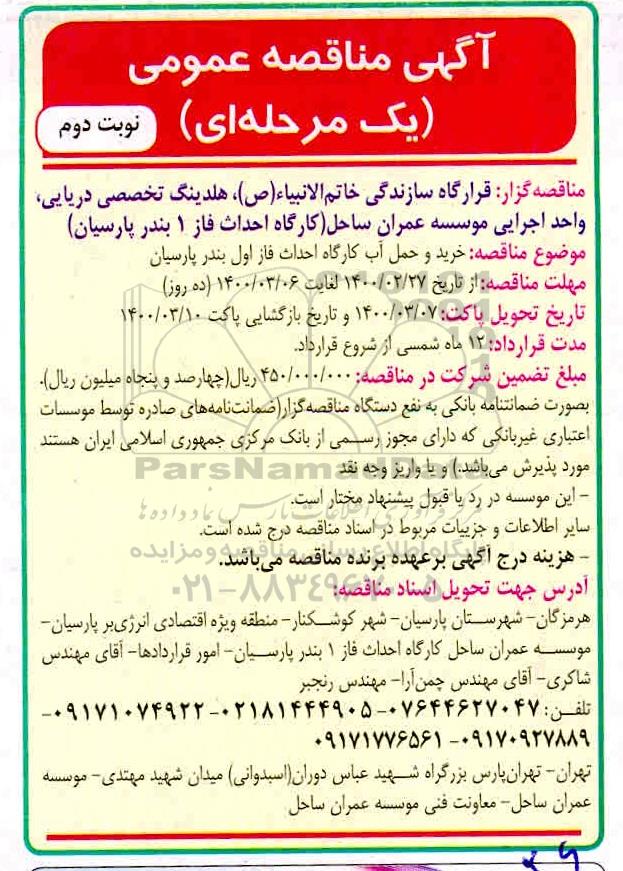 آگهی مناقصه عمومی
(یک مرحله‌ای)
نوبت دوم
مناقصه‌گزار: قرارگاه سازندگی خاتم‌الانبیاء(ص)، هلدینگ تخصصی دریایی،
واحد اجرایی موسسه عمران ساحل(کارگاه احداث فاز ۱ بندر پارسیان)
موضوع مناقصه: خرید و حمل آب کارگاه احداث فاز اول بندر پارسیان
مهلت مناقصه: از تاریخ ۱۴۰۰/۰۲/۲۷ لغایت ۱۴۰۰/۰۳/۰۶ (ده روز)
تاریخ تحویل پاکت: ۱۴۰۰/۰۳/۰۷ و تاریخ بازگشایی پاکت ۱۴۰۰/۰۳/۱۰
مدت قرارداد: ۱۲ ماه شمسی از شروع قرارداد.
مبلغ تضمین شرکت در مناقصه: ۴۵۰/۰۰۰/۰۰۰ ریال(چهارصد و پنجاه میلیون ریال).
بصورت ضمانتنامه بانکی به نفع دستگاه مناقصه‌گزار(ضمانت‌نامه‌های صادره توسط موسسات
اعتباری غیربانکی که دارای مجوز رسمی از بانک مرکزی جمهوری اسلامی ایران هستند
مورد پذیرش می‌باشد.) و یا واریز وجه نقد
ParsNamadData
- این موسسه در رد یا قبول پیشنهاد مختار است.
سایر اطلاعات و جزییات مربوط در اسناد مناقصه درج شده است.
پایگاه اطلاع رسانی مناقصه و مزایده
- هزینه درج آگهی برعهده برنده مناقصه می‌باشد.
آدرس جهت تحویل اسناد مناقصه:
هرمزگان- شهرستان پارسیان- شهر کوشکنار- منطقه ویژه اقتصادی انرژی‌بر پارسیان-
موسسه عمران ساحل کارگاه احداث فاز ۱ بندر پارسیان- امور قراردادها- آقای مهندس
شاکری- آقای مهندس چمن‌آرا- مهندس رنجبر
تلفن: ۰۷۶۴۴۶۲۷۰۴۷- ۰۲۱۸۱۴۴۴۹۰۵- ۰۹۱۷۱۰۷۴۹۲۲-
۰۹۱۷۰۹۲۷۸۸۹- ۰۹۱۷۱۷۷۶۵۶۱
تهران- تهران‌پارس بزرگراه شهید عباس دوران(اسبدوانی) میدان شهید مهتدی- موسسه
عمران ساحل- معاونت فنی موسسه عمران ساحل